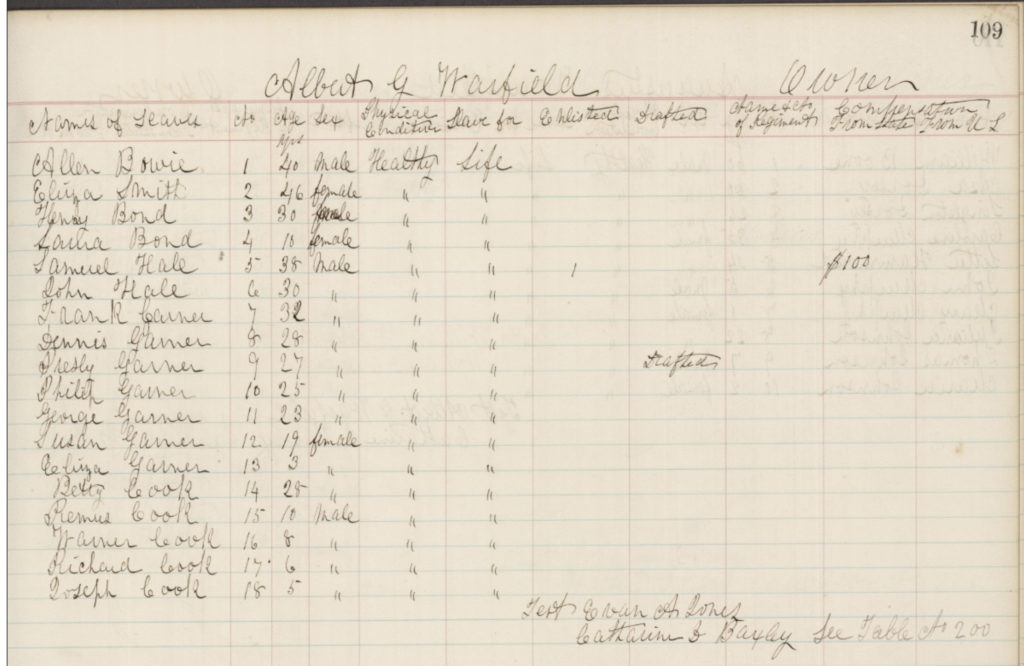 109
Albert G Warfield Owner
Names of Slaves No Age Sex Physical Condition Slave for Enlisted Drafted Name & No of Regiment Compensation From State From U S
Yrs
Allen Bowie 1 40 Male Healthy Life
Eliza Smith 2 46 female " "
Henny Bond 3 30 female " "
Bond 4 10 female " "
Samuel Hale 5 38 Male " " 1 $100
John Hale 6 30 " " "
Frank Garner 7 32 " " "
Dennis Garner 8 28 " " "
Presly Garner 9 27 " " " Drafted
Philip Garner 10 25 " " "
George Garner 11 23 " " "
Susan Garner 12 19 female " "
Eliza Garner 13 3 " " "
Betty Cook 14 28 " " "
Remus Cook 15 10 Male " "
Warner Cook 16 8 " " "
Richard Cook 17 6 " " "
Joseph Cook 18 5 " " "
Test Evan A Jones
Catharine D Baxley See Table No 200